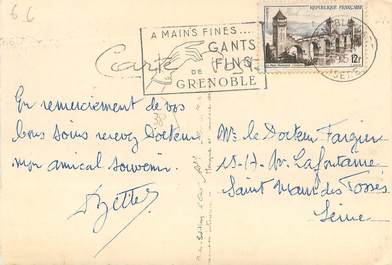 6.6
A MAINS FINES...
GANTS
FINS
DE
GRENOBLE
REPUBLIQUE FRANÇAISE
12F
Carte
En remerciement de vos
bons soins recevez Docteur
mon amical souvenir.
Mr le Docteur Fargier
15-17- Av. Lafontaine
Saint Maur des Fossés
Seine